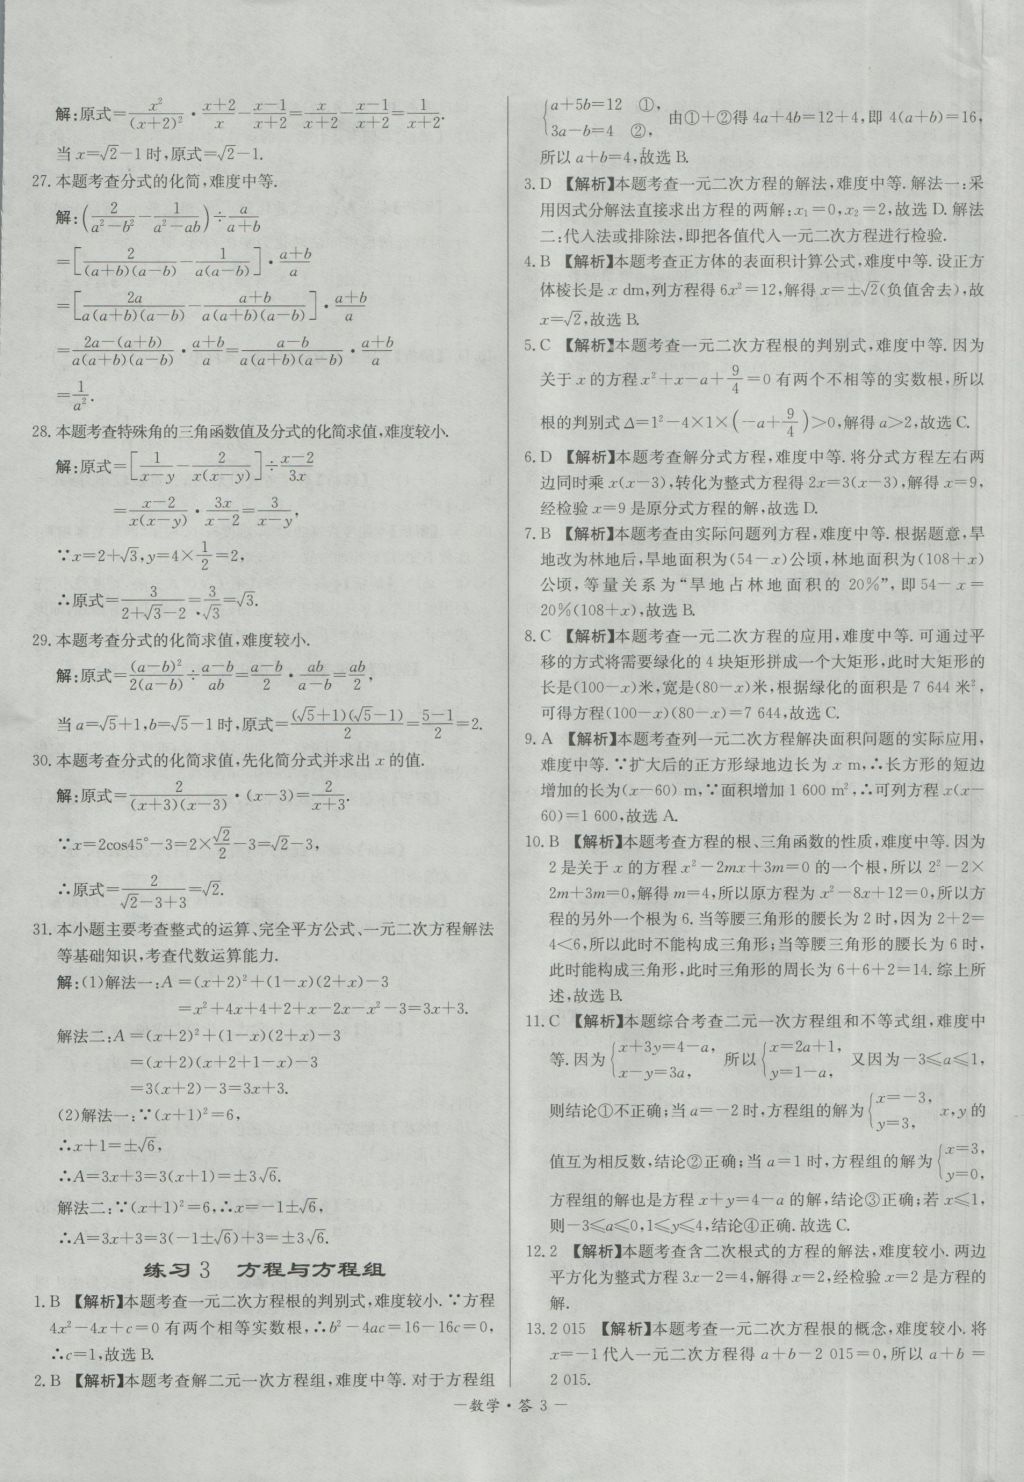 解:原式=\frac{x^2}{(x+2)^2}·\frac{x+2}{x}-\frac{x-1}{x+2}=\frac{x}{x+2}-\frac{x-1}{x+2}=\frac{1}{x+2}.
当 x=√2-1 时,原式=√2-1.
27. 本题考查分式的化简,难度中等.
解:(\frac{2}{a^2-b^2}-\frac{1}{a^2-ab})÷\frac{a}{a+b}
=[\frac{2}{(a+b)(a-b)}-\frac{1}{a(a-b)}]·\frac{a+b}{a}
=[\frac{2a}{a(a+b)(a-b)}-\frac{a+b}{a(a+b)(a-b)}]·\frac{a+b}{a}
=\frac{2a-(a+b)}{a(a+b)(a-b)}·\frac{a+b}{a}=\frac{a-b}{a(a+b)(a-b)}·\frac{a+b}{a}
=\frac{1}{a^2}.
28. 本题考查特殊角的三角函数值及分式的化简求值,难度较小.
解:原式=[\frac{1}{x-y}-\frac{2}{x(x-y)}]÷\frac{x-2}{3x}
=\frac{x-2}{x(x-y)}·\frac{3x}{x-2}=\frac{3}{x-y},
∵x=2+√3,y=4×\frac{1}{2}=2,
∴原式=\frac{3}{2+√3-2}=\frac{3}{√3}=√3.
29. 本题考查分式的化简求值,难度较小.
解:原式=\frac{(a-b)^2}{2(a-b)}÷\frac{a-b}{ab}=\frac{a-b}{2}·\frac{ab}{a-b}=\frac{ab}{2},
当 a=√5+1,b=√5-1 时,原式=\frac{(√5+1)(√5-1)}{2}=\frac{5-1}{2}=2.
30. 本题考查分式的化简求值,先化简分式并求出 x 的值.
解:原式=\frac{2}{(x+3)(x-3)}·(x-3)=\frac{2}{x+3}.
∵x=2cos45°-3=2×\frac{√2}{2}-3=√2-3,
∴原式=\frac{2}{√2-3+3}=√2.
31. 本小题主要考查整式的运算、完全平方公式、一元二次方程解法
等基础知识,考查代数运算能力.
解:(1)解法一:A=(x+2)²+(1-x)(2+x)-3
=x²+4x+4+2+x-2x-x²-3=3x+3.
解法二:A=(x+2)²+(1-x)(2+x)-3
=(x+2)(x+2+1-x)-3
=3(x+2)-3=3x+3.
(2)解法一:∵(x+1)²=6,
∴x+1=±√6,
∴A=3x+3=3(x+1)=±3√6.
解法二:∵(x+1)²=6,∴x=-1±√6,
∴A=3x+3=3(-1±√6)+3=±3√6.
练习 3 方程与方程组
1. B 【解析】本题考查一元二次方程根的判别式,难度较小. ∵方程
4x²-4x+c=0 有两个相等实数根,∴b²-4ac=16-16c=0,
∴c=1,故选 B.
2. B 【解析】本题考查解二元一次方程组,难度中等. 对于方程组
{a+5b=12 ①, 3a-b=4 ②, 由①+②得 4a+4b=12+4,即 4(a+b)=16,
所以 a+b=4,故选 B.
3. D 【解析】本题考查一元二次方程的解法,难度中等. 解法一:采
用因式分解法直接求出方程的两解:x₁=0,x₂=2,故选 D. 解法
二:代入法或排除法,即把各值代入一元二次方程进行检验.
4. B 【解析】本题考查正方体的表面积计算公式,难度中等. 设正方
体棱长是 x dm,列方程得 6x²=12,解得 x=±√2(负值舍去),故
x=√2,故选 B.
5. C 【解析】本题考查一元二次方程根的判别式,难度中等. 因为
关于 x 的方程 x²+x-a+\frac{9}{4}=0 有两个不相等的实数根,所以
根的判别式 Δ=1²-4×1×(-a+\frac{9}{4})>0,解得 a>2,故选 C.
6. D 【解析】本题考查解分式方程,难度中等. 将分式方程左右两
边同时乘 x(x-3),转化为整式方程得 2x=3(x-3),解得 x=9,
经检验 x=9 是原分式方程的解,故选 D.
7. B 【解析】本题考查由实际问题列方程,难度中等. 根据题意,旱
地改为林地后,旱地面积为(54-x)公顷,林地面积为(108+x)
公顷,等量关系为“旱地占林地面积的 20%”,即 54-x=
20%(108+x),故选 B.
8. C 【解析】本题考查一元二次方程的应用,难度中等. 可通过平
移的方式将需要绿化的 4 块矩形拼成一个大矩形,此时大矩形的
长是(100-x)米,宽是(80-x)米,根据绿化的面积是 7 644 米²,
可得方程(100-x)(80-x)=7 644,故选 C.
9. A 【解析】本题考查列一元二次方程解决面积问题的实际应用,
难度中等. ∵扩大后的正方形绿地边长为 x m,∴长方形的短边
增加的长为(x-60) m,∵面积增加 1 600 m²,∴可列方程 x(x-
60)=1 600,故选 A.
10. B 【解析】本题考查方程的根、三角函数的性质,难度中等. 因为
2 是关于 x 的方程 x²-2mx+3m=0 的一个根,所以 2²-2×
2m+3m=0,解得 m=4,所以原方程为 x²-8x+12=0,所以方
程的另外一个根为 6. 当等腰三角形的腰长为 2 时,因为 2+2=
4<6,所以此时不能构成三角形;当等腰三角形的腰长为 6 时,
此时能构成三角形,此时三角形的周长为 6+6+2=14. 综上所
述,故选 B.
11. C 【解析】本题综合考查二元一次方程组和不等式组,难度中
等. 因为{x+3y=4-a, x-y=3a, 所以{x=2a+1, y=1-a, 又因为-3≤a≤1,
则结论①不正确;当 a=-2 时,方程组的解为{x=-3, y=3, x,y 的
值互为相反数,结论②正确;当 a=1 时,方程组的解为{x=3, y=0,
方程组的解也是方程 x+y=4-a 的解,结论③正确;若 x≤1,
则-3≤a≤0,1≤y≤4,结论④正确. 故选 C.
12. 2 【解析】本题考查含二次根式的方程的解法,难度较小. 两边
平方化为整式方程 3x-2=4,解得 x=2,经检验 x=2 是方程的
解.
13. 2 015 【解析】本题考查一元二次方程根的概念,难度较小. 将
x=-1 代入一元二次方程得 a+b-2 015=0,所以 a+b=
2 015.
—数学·答 3—